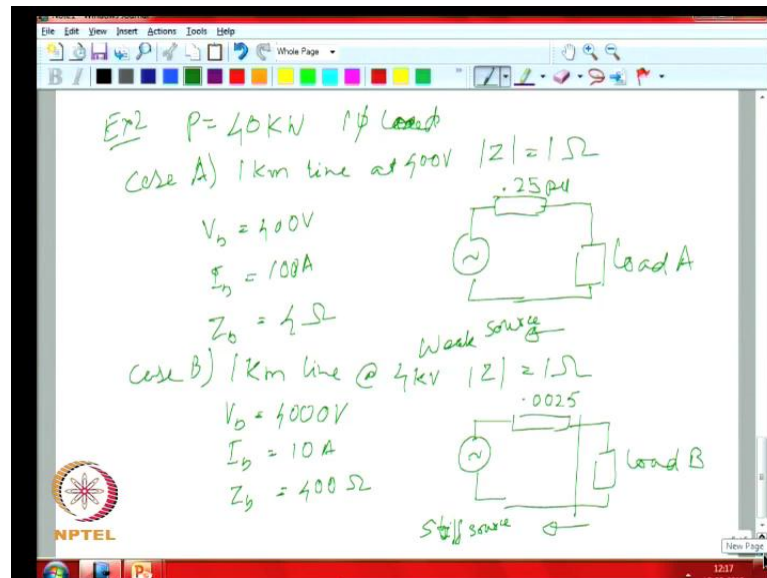 File Edit View Insert Actions Tools Help
Whole Page
B I
Ex2 P = 40 KW 1φ Load
Case A) 1 Km line at 400V |Z| = 1 Ω
.25 pu
V_b = 400V
I_b = 100A
Z_b = 4 Ω
Load A
Weak source
Case B) 1 Km line @ 4kV |Z| = 1 Ω
.0025
V_b = 4000V
I_b = 10A
Z_b = 400 Ω
Load B
Stiff source
NPTEL
New Page
12:17